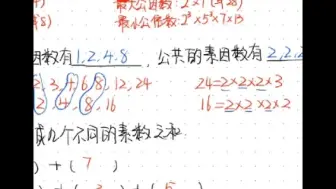 最大公因数: 2²×7 (=28)
最小公倍数: 2³×5×7×13
因数有 1.2.4.8 , 公共的素因数有 2,2,2
2, 3, 4, 6, 8, 12, 24 24=2×2×2×3
2, 4, 8, 16 16=2×2×2×2
成几个不同的素数之和.
) + ( 7 )
) + ( 3 ) + ( 5